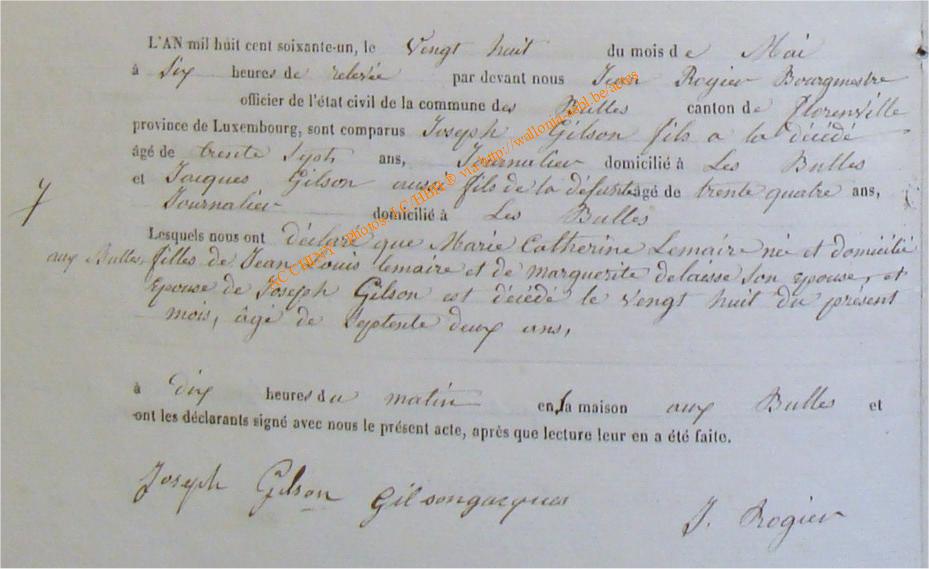 L'AN mil huit cent soixante-un, le Vengt huit du mois de Mai
à Six heures de relevée par devant nous Jean Rogier Bourgmestre
officier de l'état civil de la commune des Bulles canton de florenville
province de Luxembourg, sont comparus Joseph Gilson fils a la décédé
âgé de trente Sept ans, Journalier domicilié à Les Bulles
et Jacques Gilson aussi fils de la défunte âgé de trente quatre ans,
7
Journalier domicilié à Les Bulles
Lesquels nous ont déclaré que Marie Catherine Lemaire né et domicilié
aux Bulles, filles de Jean Louis lemaire et de marguerite delaisse Son epouse, et
Epouse de Joseph Gilson est décédé le Vengt huit du présent
mois, âgé de Septente deux ans,
à dix heures du matin en la maison aux Bulles et
ont les déclarants signé avec nous le présent acte, après que lecture leur en a été faite.
Joseph Gilson Gilsonjacques J. Rogier
AC CHINY - photos AC CHINY © via http://wallonia.asbl.be.actes